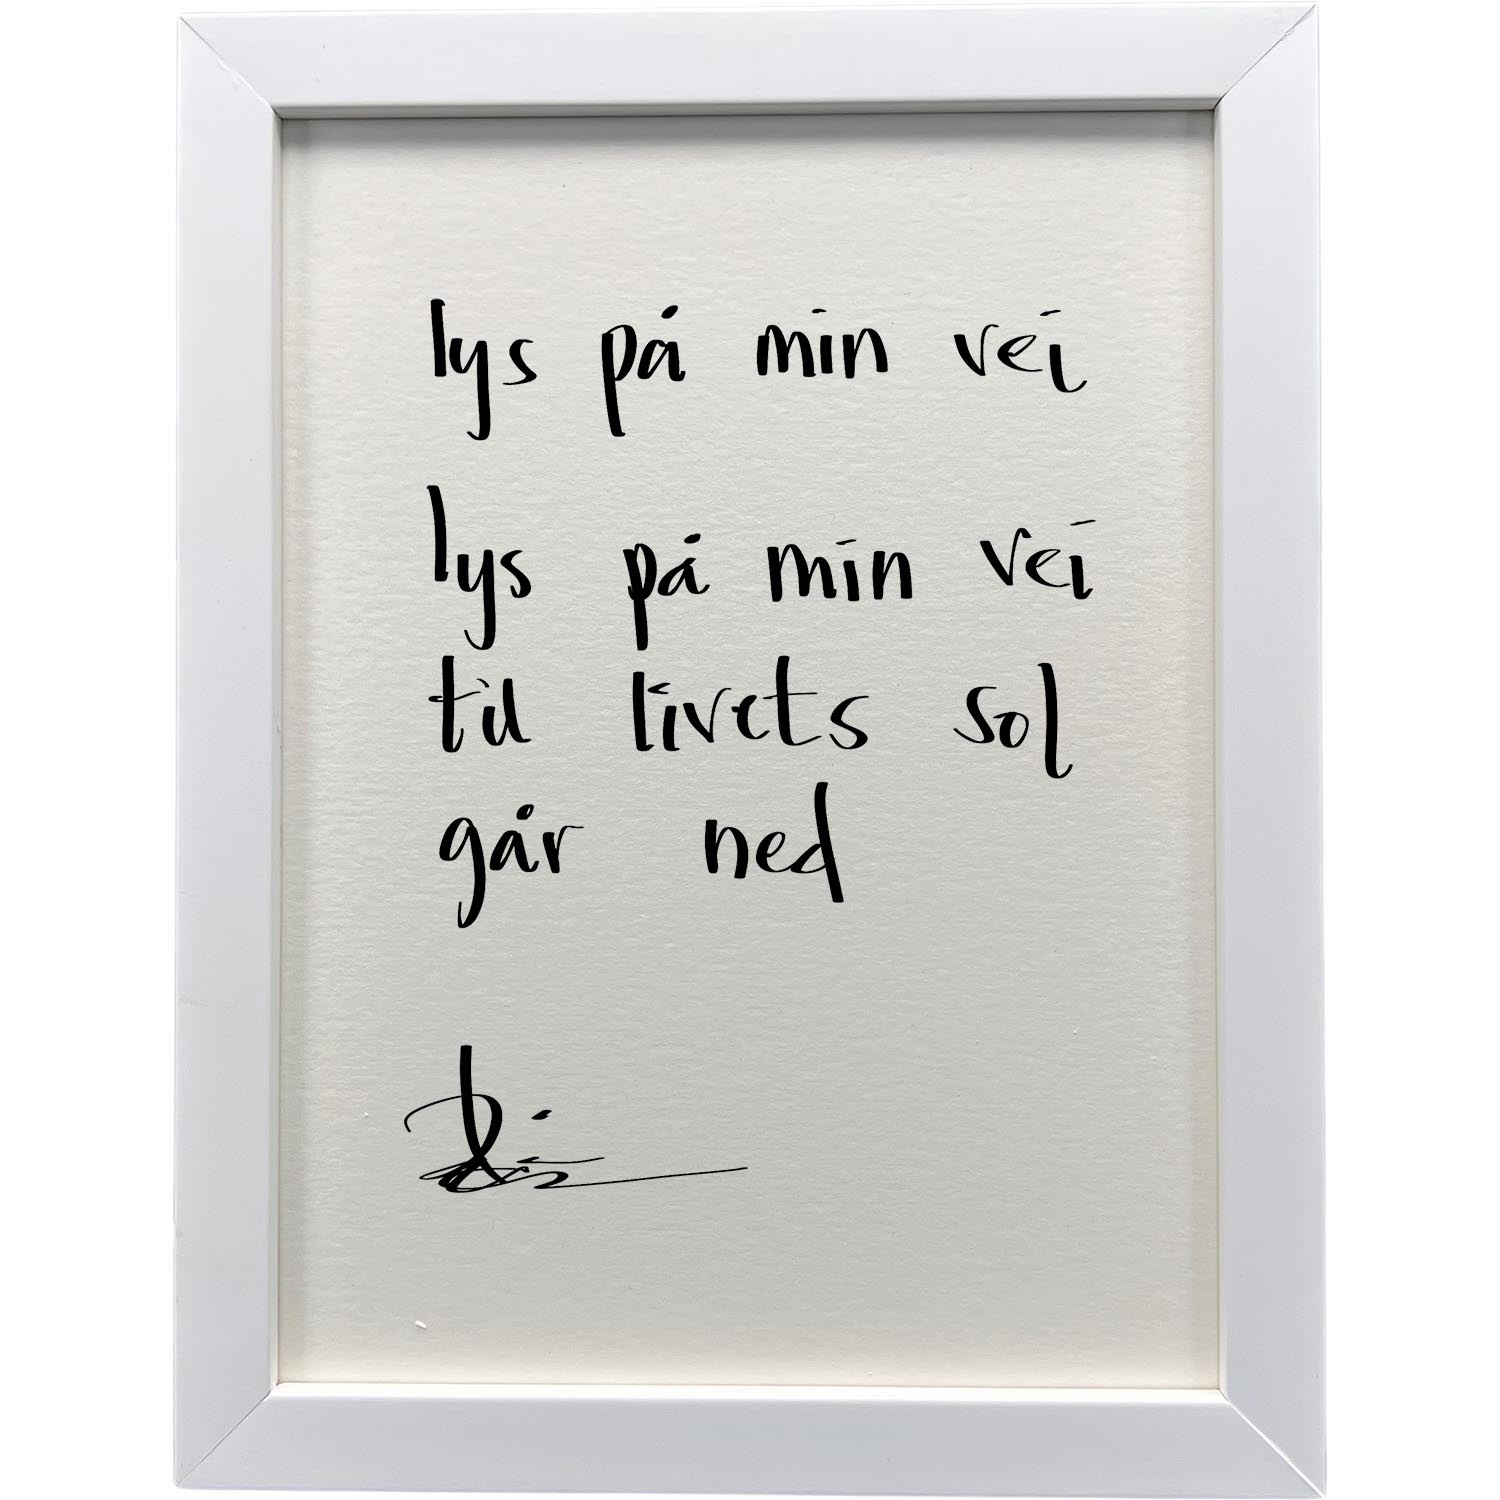 lys på min vei
lys på min vei
til livets sol
går ned